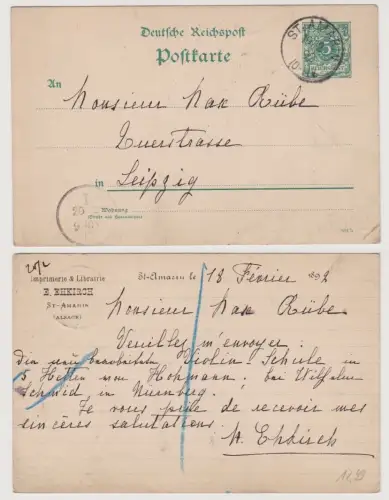 Deutsche Reichspost
Postkarte
ST. AMARIN
5
An
Monsieur Max Rübe
Querstrasse
in Leipzig
Wohnung
(Straße und Hausnummer)
20/2
Imprimerie & Librairie
E. EHKIRCH
St-Amarin
(ALSACE)
St-Amarin le 18 Février 1892
Monsieur Max Rübe
Veuillez m'envoyer:
Die neu bearbeitete Violin Schule in
5 Heften von Hohmann, bei Wilhelm
Schmid in Nürnberg.
Je vous prie de recevoir mes
sincères salutations
Ehkirch